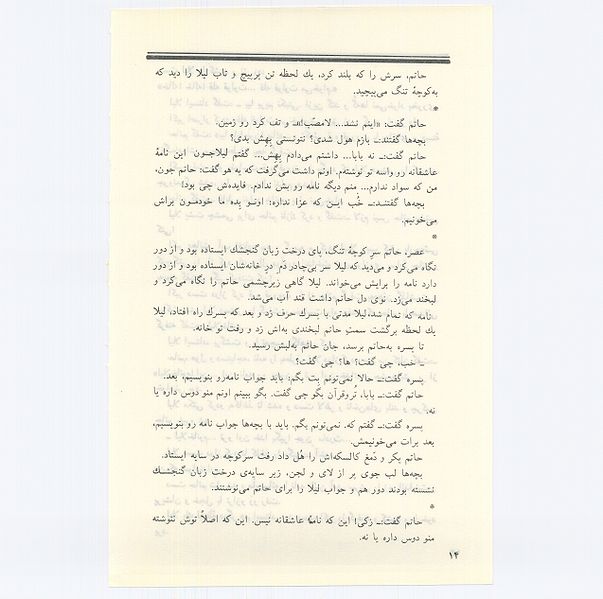 حاتم، سرش را که بلند کرد، یك لحظه تن پرپیچ و تاب لیلا را دید که
به‌کوچهٔ تنگ می‌پیچید.
*
حاتم گفت: «اینم نشد... لامصّب!» و تف کرد رو زمین.
بچه‌ها گفتند:ــ بازم هول شدی؟ نتونستی بِهِش بدی؟
حاتم گفت:ــ نه بابا... داشتم می‌دادم بِهِش... گفتم لیلاجــون این نامهٔ
عاشقانه رو واسه تو نوشته‌م. اونم داشت می‌گرفت که یه هو گفت: حاتم جون،
من که سواد ندارم... منم دیگه نامه رو بش ندادم. فایده‌ش چی بود!
بچه‌ها گفتنــد:ــ خُب ایــن که عزا نداره: اونــو بِده ما خودمــون براش
می‌خونیم.
*
عصر، حاتم سرِ کوچهٔ تنگ، پای درخت زبان گنجشك ایستاده بود و از دور
نگاه می‌کرد و می‌دید که لیلا سر بی‌چادر دَم ِ در خانه‌شان ایستاده بود و از دور
دارد نامه را برایش می‌خواند. لیلا گاهی زیرچشمی حاتم را نگاه می‌کرد و
لبخند می‌زد. توی دل حاتم داشت قند آب می‌شد.
نامه که تمام شد، لیلا مدتی با پسرك حرف زد و بعد که پسرك راه افتاد، لیلا
یك لحظه برگشت سمتِ حاتم لبخندی به‌اش زد و رفت تو خانه.
تا پسره به‌حاتم برسد، جان حاتم به‌لبش رسید.
ــ خب، چی گفت؟ ها؟ چی گفت؟
پسره گفت:ــ حالا نمی‌تونم بِت بگم: باید جواب نامه‌رو بنویسیم، بعد.
حاتم گفت:ــ بابا، تُروقرآن بگو چی گفت. بگو ببینم اونم منو دوس داره یا
نه.
پسره گفت:ــ گفتم که. نمی‌تونم بگم. باید با بچه‌ها جواب نامه رو بنویسیم،
بعد برات می‌خونیمش.
حاتم پکر و دَمَغ کالسکه‌اش را هُل داد رفت سرکوچه در سایه ایستاد.
بچه‌ها لب جوی پر از لای و لجن، زیر سایه‌ی درخت زبان گنجشــك
نشسته بودند دور هم و جواب لیلا را برای حاتم می‌نوشتند.
*
حاتم گفت:ــ زکی! این که نامهٔ عاشقانه نیس. این که اصلاً توش ننوشته
منو دوس داره یا نه.
۱۴